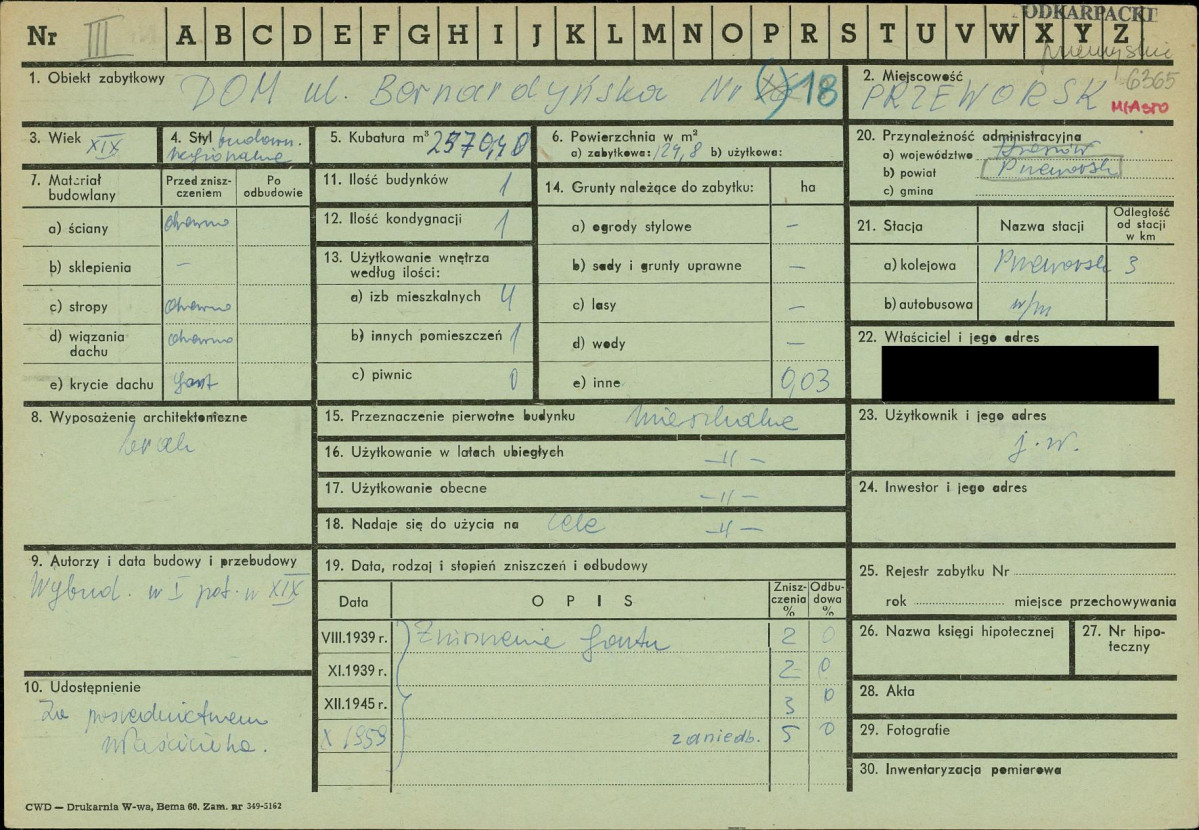 PODKARPACKI
Nr III A B C D E F G H I J K L M N O P R S T U V W X Y Z
przemyskie
1. Obiekt zabytkowy DOM ul. Bernardyńska Nr 18
2. Miejscowość 6365
PRZEWORSK MIASTO
3. Wiek XIX
4. Styl budown. regionalne
5. Kubatura m³ 2570,40
6. Powierzchnia w m²
a) zabytkowa: 124,8 b) użytkowa:
20. Przynależność administracyjna
a) województwo Rzeszów
b) powiat Przeworsk
c) gmina
7. Materiał budowlany
Przed zniszczeniem
Po odbudowie
a) ściany drewno
b) sklepienia –
c) stropy drewno
d) wiązania dachu drewno
e) krycie dachu gont
11. Ilość budynków 1
12. Ilość kondygnacji 1
13. Użytkowanie wnętrza
według ilości:
a) izb mieszkalnych 4
b) innych pomieszczeń 1
c) piwnic 0
14. Grunty należące do zabytku: ha
a) ogrody stylowe –
b) sady i grunty uprawne –
c) lasy –
d) wody –
e) inne 0,03
21. Stacja Nazwa stacji Odległość od stacji w km
a) kolejowa Przeworsk 3
b) autobusowa w/m
22. Właściciel i jego adres
8. Wyposażenie architektoniczne
brak
15. Przeznaczenie pierwotne budynku mieszkalne
16. Użytkowanie w latach ubiegłych –"–
17. Użytkowanie obecne –"–
18. Nadaje się do użycia na cele –"–
23. Użytkownik i jego adres
j.w.
24. Inwestor i jego adres
9. Autorzy i data budowy i przebudowy
Wybud. w I poł. w XIX
19. Data, rodzaj i stopień zniszczeń i odbudowy
Data OPIS Zniszczenia % Odbudowa %
VIII.1939 r. Zniszczenie gontu 2 0
XI.1939 r. 2 0
XII.1945 r. 3 0
X 1959 zaniedb. 5 0
10. Udostępnienie
Za pośrednictwem
właściciela.
25. Rejestr zabytku Nr
rok miejsce przechowywania
26. Nazwa księgi hipotecznej
27. Nr hipoteczny
28. Akta
29. Fotografie
30. Inwentaryzacja pomiarowa
CWD — Drukarnia W-wa, Bema 60. Zam. nr 349-5162